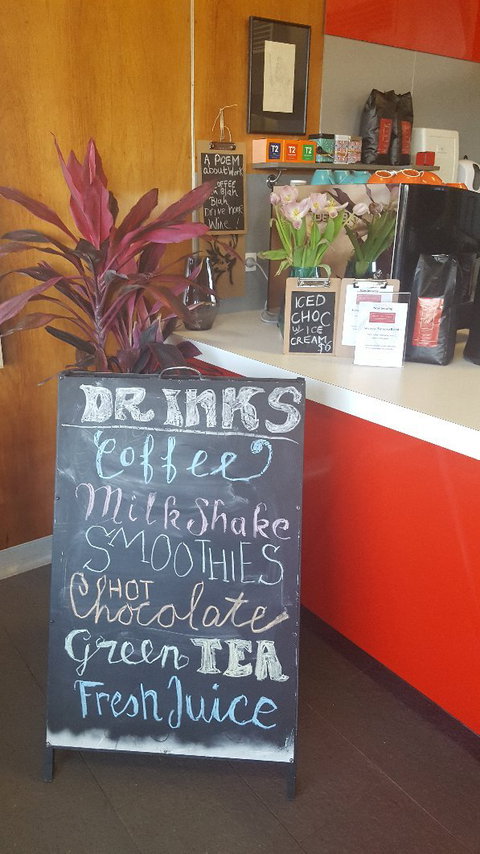 A POEM
about Work
COFFEE
Blah Blah
Blah
Drink more
Wine!
T2
T2
T2
ICED
CHOC
w/ ICE
CREAM
$6
DRINKS
Coffee
MilkShake
SMOOTHIES
HOT
Chocolate
Green TEA
Fresh Juice